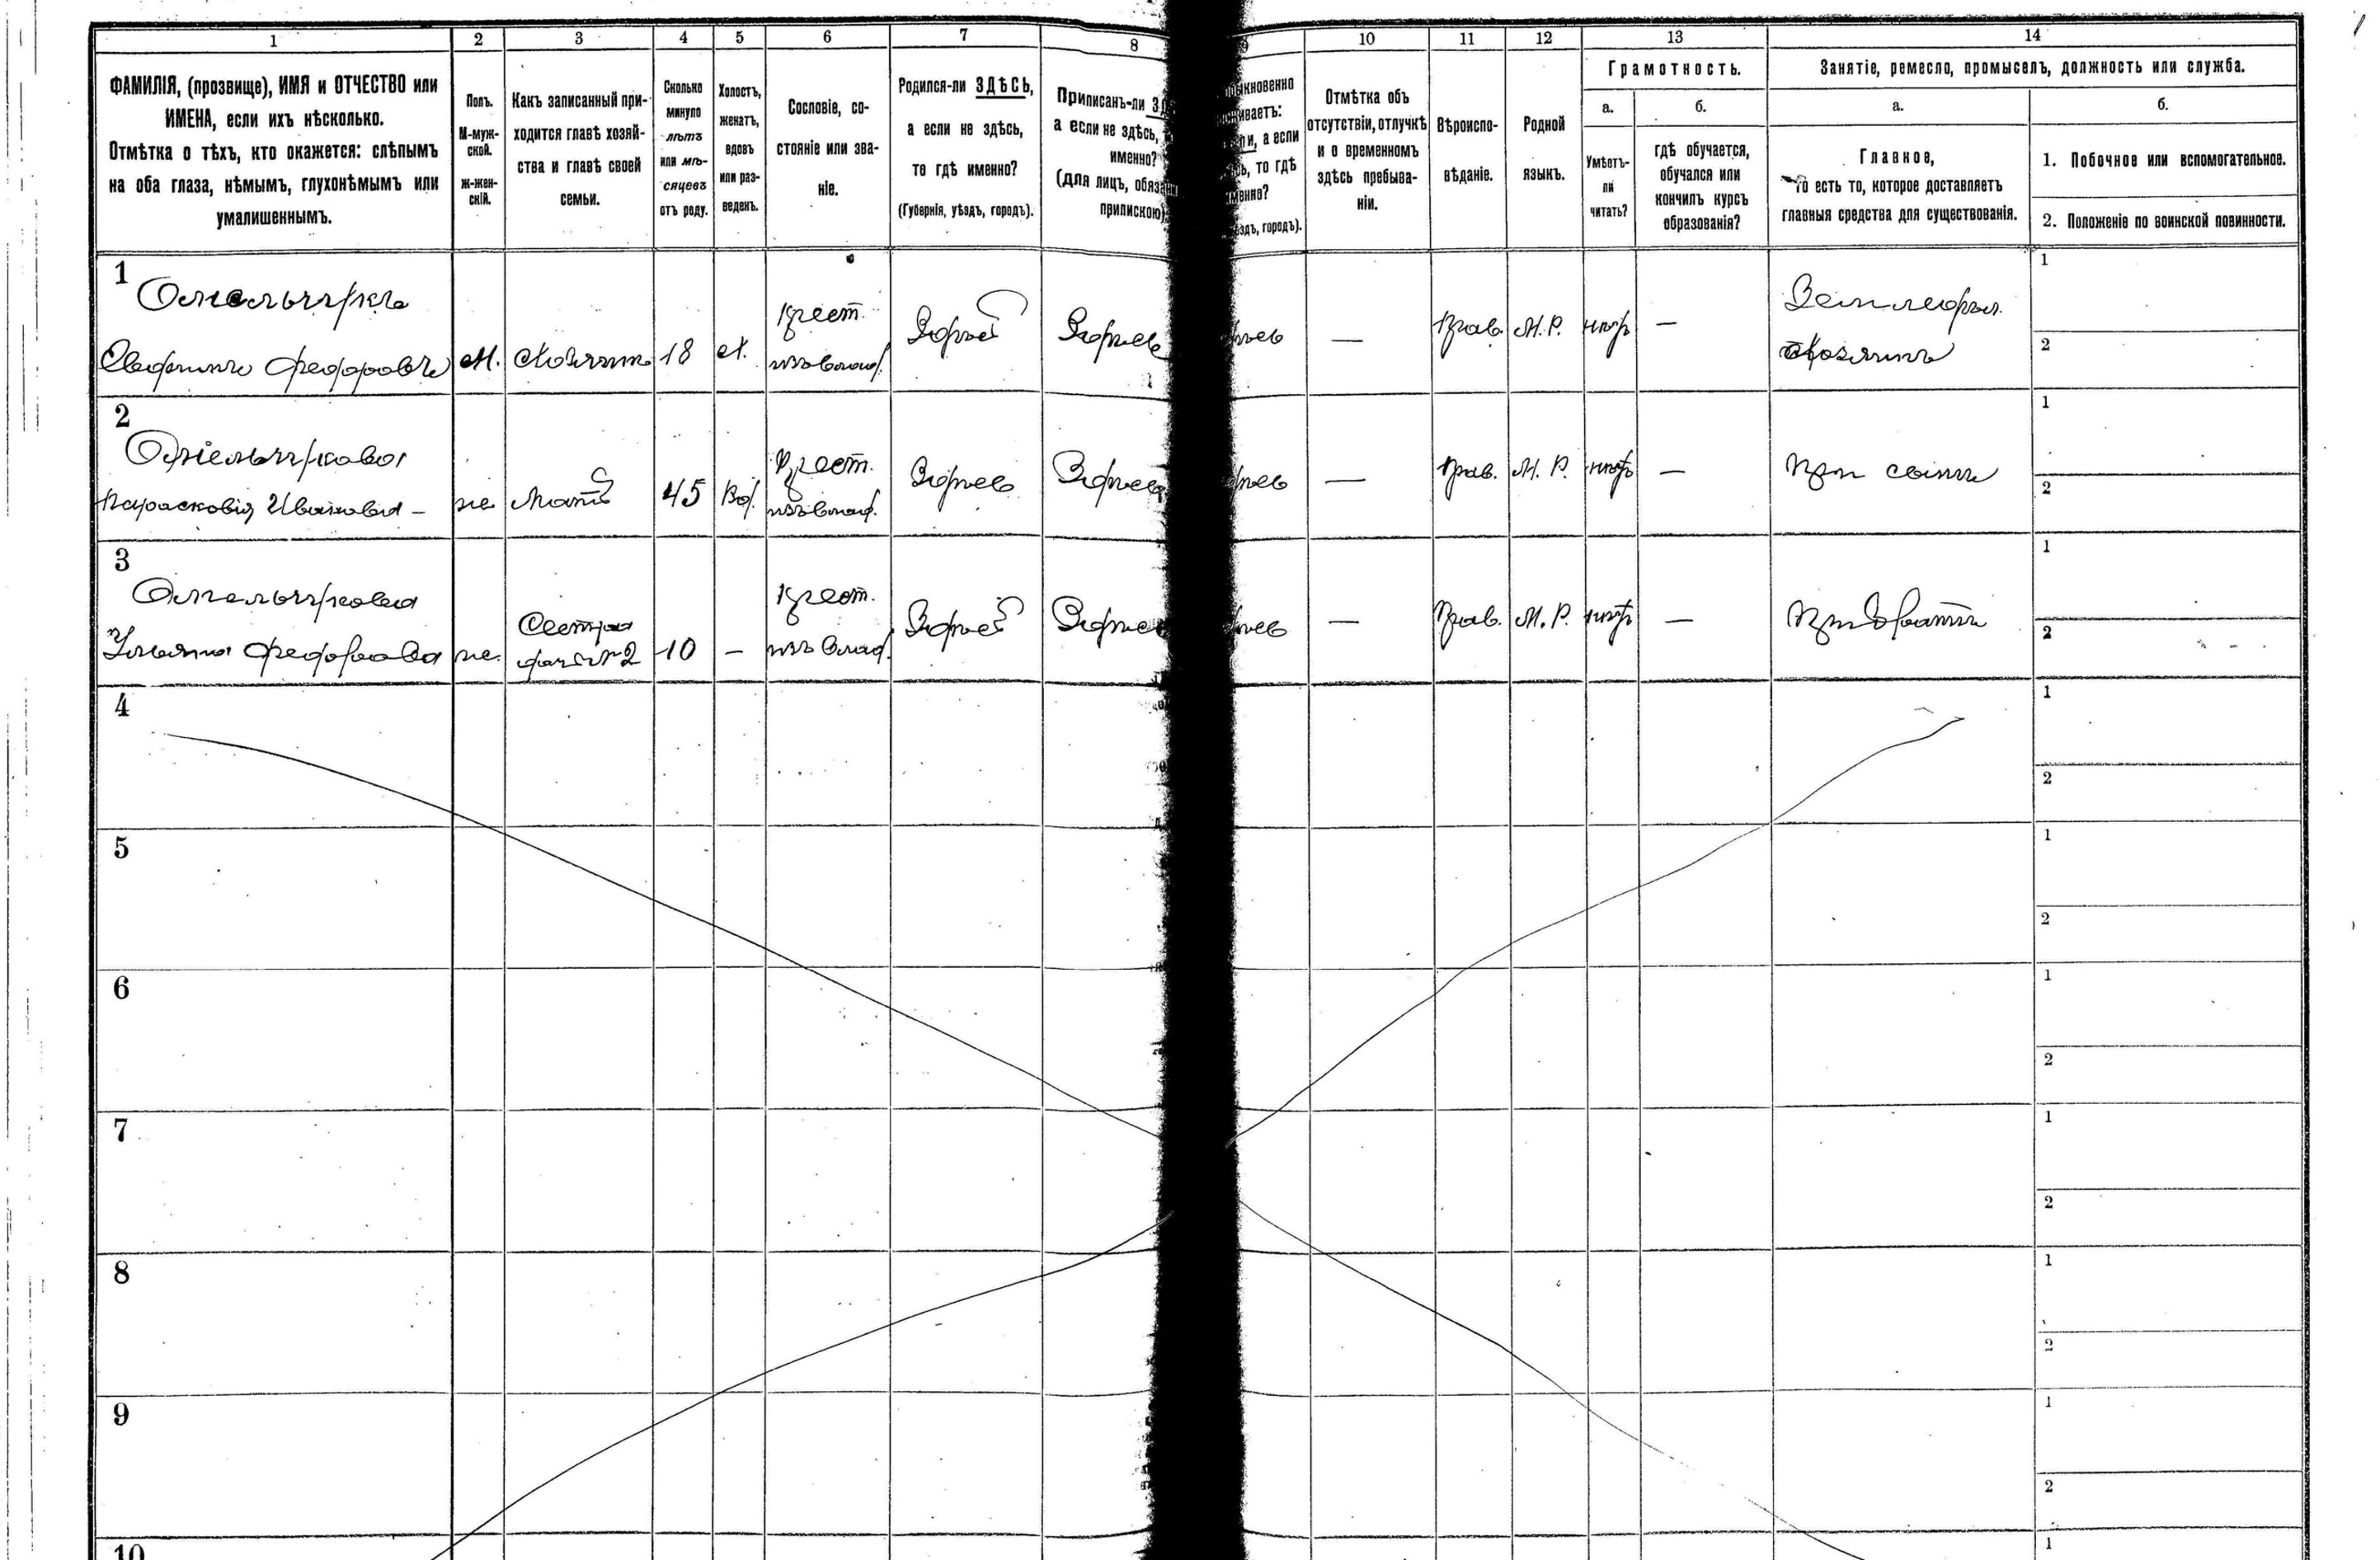 1
2
3
4
5
6
7
8
9
10
11
12
13
14
ФАМИЛІЯ, (прозвище), ИМЯ и ОТЧЕСТВО или
ИМЕНА, если ихъ нѣсколько.
Отмѣтка о тѣхъ, кто окажется: слѣпымъ
на оба глаза, нѣмымъ, глухонѣмымъ или
умалишеннымъ.
Полъ.
М-муж-
ской.
ж-жен-
скій.
Какъ записанный при-
ходится главѣ хозяй-
ства и главѣ своей
семьи.
Сколько
минуло
лѣтъ
или мѣ-
сяцевъ
отъ роду.
Холостъ,
женатъ,
вдовъ
или раз-
веденъ.
Сословіе, со-
стояніе или зва-
ніе.
Родился-ли ЗДѢСЬ,
а если не здѣсь,
то гдѣ именно?
(Губернія, уѣздъ, городъ).
Приписанъ-ли
а если не здѣсь,
именно?
(для лицъ, обяза
припискою)
а если
то гдѣ
городъ).
Отмѣтка объ
отсутствіи, отлучкѣ
и о временномъ
здѣсь пребыва-
ніи.
Вѣроиспо-
вѣданіе.
Родной
языкъ.
Грамотность.
а.
Умѣетъ-
ли
читать?
б.
гдѣ обучается,
обучался или
кончилъ курсъ
образованія?
Занятіе, ремесло, промыселъ, должность или служба.
а.
Главное,
то есть то, которое доставляетъ
главныя средства для существованія.
б.
1. Побочное или вспомогательное.
2. Положеніе по воинской повинности.
1
Федоровъ
М.
Хозяинъ
18
Х.
крест.
изъ влад.
Здѣсь
Здѣсь
—
Прав.
М. Р.
нѣтъ
—
Земледѣл.
Хозяинъ
1
2
2
Парасковія Ивановна
же
Мать
45
Вд.
крест.
изъ влад.
Здѣсь
Здѣсь
—
Прав.
М. Р.
нѣтъ
—
При сынѣ
1
2
3
Ульяна Федоровна
же.
Сестра
дочь № 2
10
—
крест.
изъ влад.
Здѣсь
Здѣсь
—
Прав.
М. Р.
нѣтъ
—
При братѣ
1
2
4
1
2
5
1
2
6
1
2
7
1
2
8
1
2
9
1
2
10
1